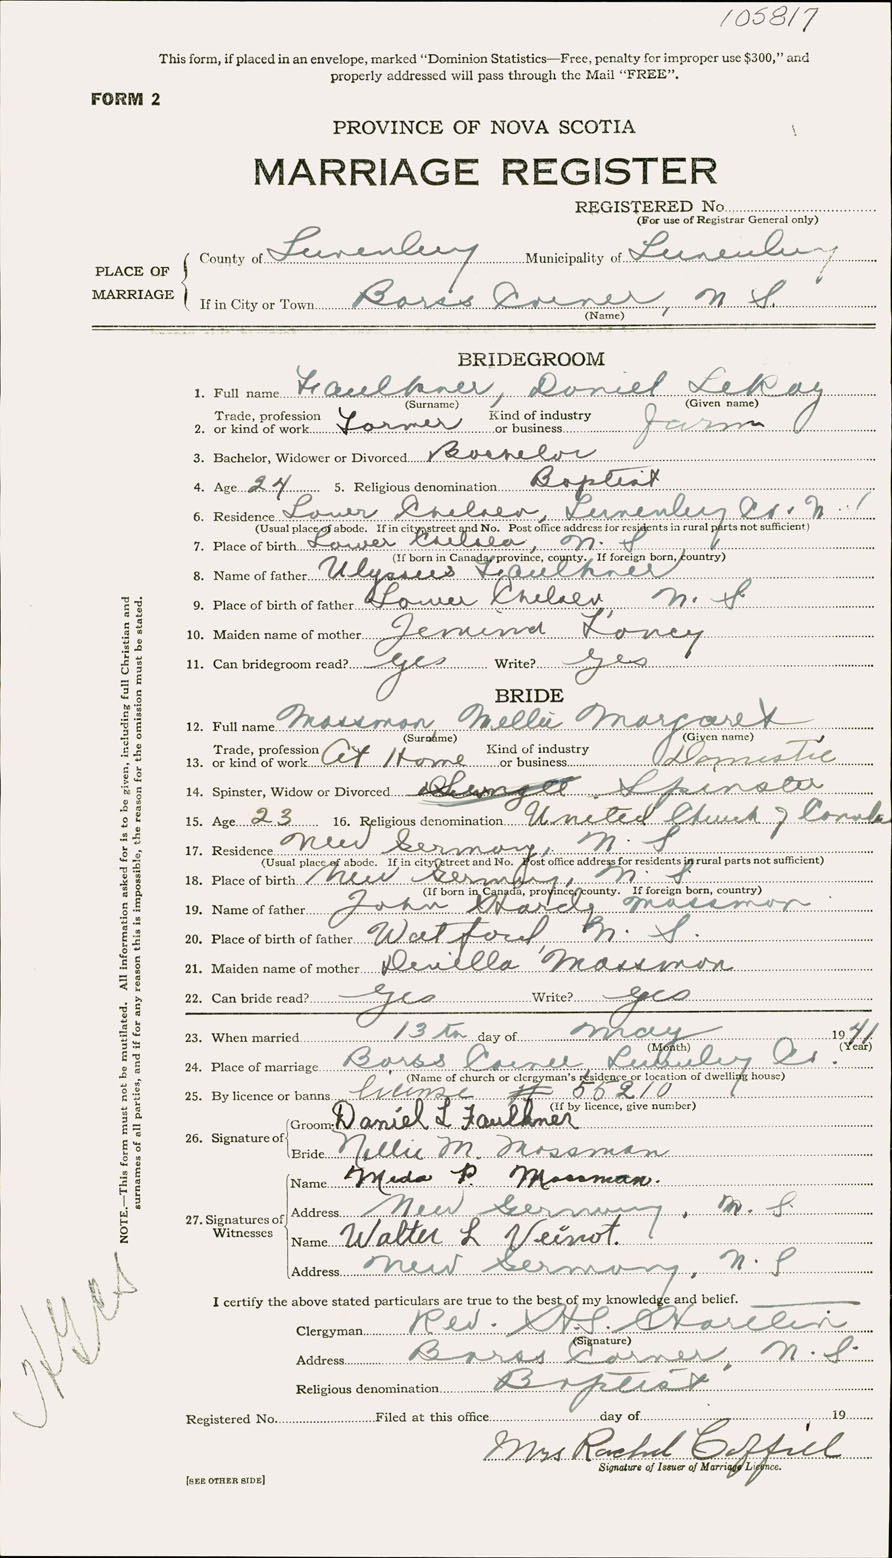 105817
This form, if placed in an envelope, marked “Dominion Statistics—Free, penalty for improper use $300,” and
properly addressed will pass through the Mail “FREE”.
FORM 2
PROVINCE OF NOVA SCOTIA
MARRIAGE REGISTER
REGISTERED No.
(For use of Registrar General only)
PLACE OF MARRIAGE
County of Lunenburg Municipality of Lunenburg
If in City or Town Barss Corner, N. S.
(Name)
BRIDEGROOM
1. Full name Faulkner, Daniel LeRoy
(Surname) (Given name)
2. Trade, profession or kind of work Farmer Kind of industry or business Farm
3. Bachelor, Widower or Divorced Bachelor
4. Age 24 5. Religious denomination Baptist
6. Residence Lower Chelsea, Lunenburg Co. N.
(Usual place of abode. If in city street and No. Post office address for residents in rural parts not sufficient)
7. Place of birth Lower Chelsea, N. S.
(If born in Canada, province, county. If foreign born, country)
8. Name of father Ulysses Faulkner
9. Place of birth of father Lower Chelsea, N. S.
10. Maiden name of mother Jemima
11. Can bridegroom read? yes Write? yes
BRIDE
12. Full name Mossman, Nellie Margaret
(Surname) (Given name)
13. Trade, profession or kind of work At Home Kind of industry or business Domestic
14. Spinster, Widow or Divorced Spinster
15. Age 23 16. Religious denomination United Church of Canada
17. Residence New Germany, N. S.
(Usual place of abode. If in city street and No. Post office address for residents in rural parts not sufficient)
18. Place of birth New Germany, N. S.
(If born in Canada, province, county. If foreign born, country)
19. Name of father John Hardy Mossman
20. Place of birth of father Watford, N. S.
21. Maiden name of mother Mossman
22. Can bride read? yes Write? yes
23. When married 13th day of May 1941
(Month) (Year)
24. Place of marriage Barss Corner Lunenburg Co.
(Name of church or clergyman's residence or location of dwelling house)
25. By licence or banns license # 56210
(If by licence, give number)
26. Signature of Groom Daniel L Faulkner
Bride Nellie M. Mossman
27. Signatures of Witnesses
Name Meda P. Mossman.
Address New Germany, N. S.
Name Walter L Veinot.
Address New Germany, N. S
I certify the above stated particulars are true to the best of my knowledge and belief.
Clergyman Rev.
(Signature)
Address Barss Corner, N. S.
Religious denomination Baptist
Registered No. Filed at this office day of 19
Mrs Rachel
Signature of Issuer of Marriage Licence.
[SEE OTHER SIDE]
NOTE.—This form must not be mutilated. All information asked for is to be given, including full Christian and
surnames of all parties, and if for any reason this is impossible, the reason for the omission must be stated.